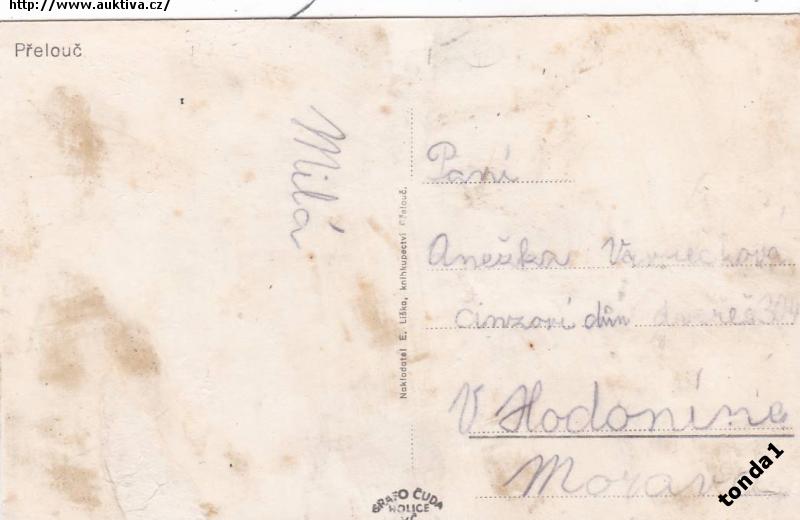 http://www.auktiva.cz/
Přelouč
Milá
Nakladatel E. Liška, knihkupectví Přelouč.
Paní
Anežka
činžovní dům
V Hodoníně
Morava
GRAFO ČUDA
HOLICE
tonda1